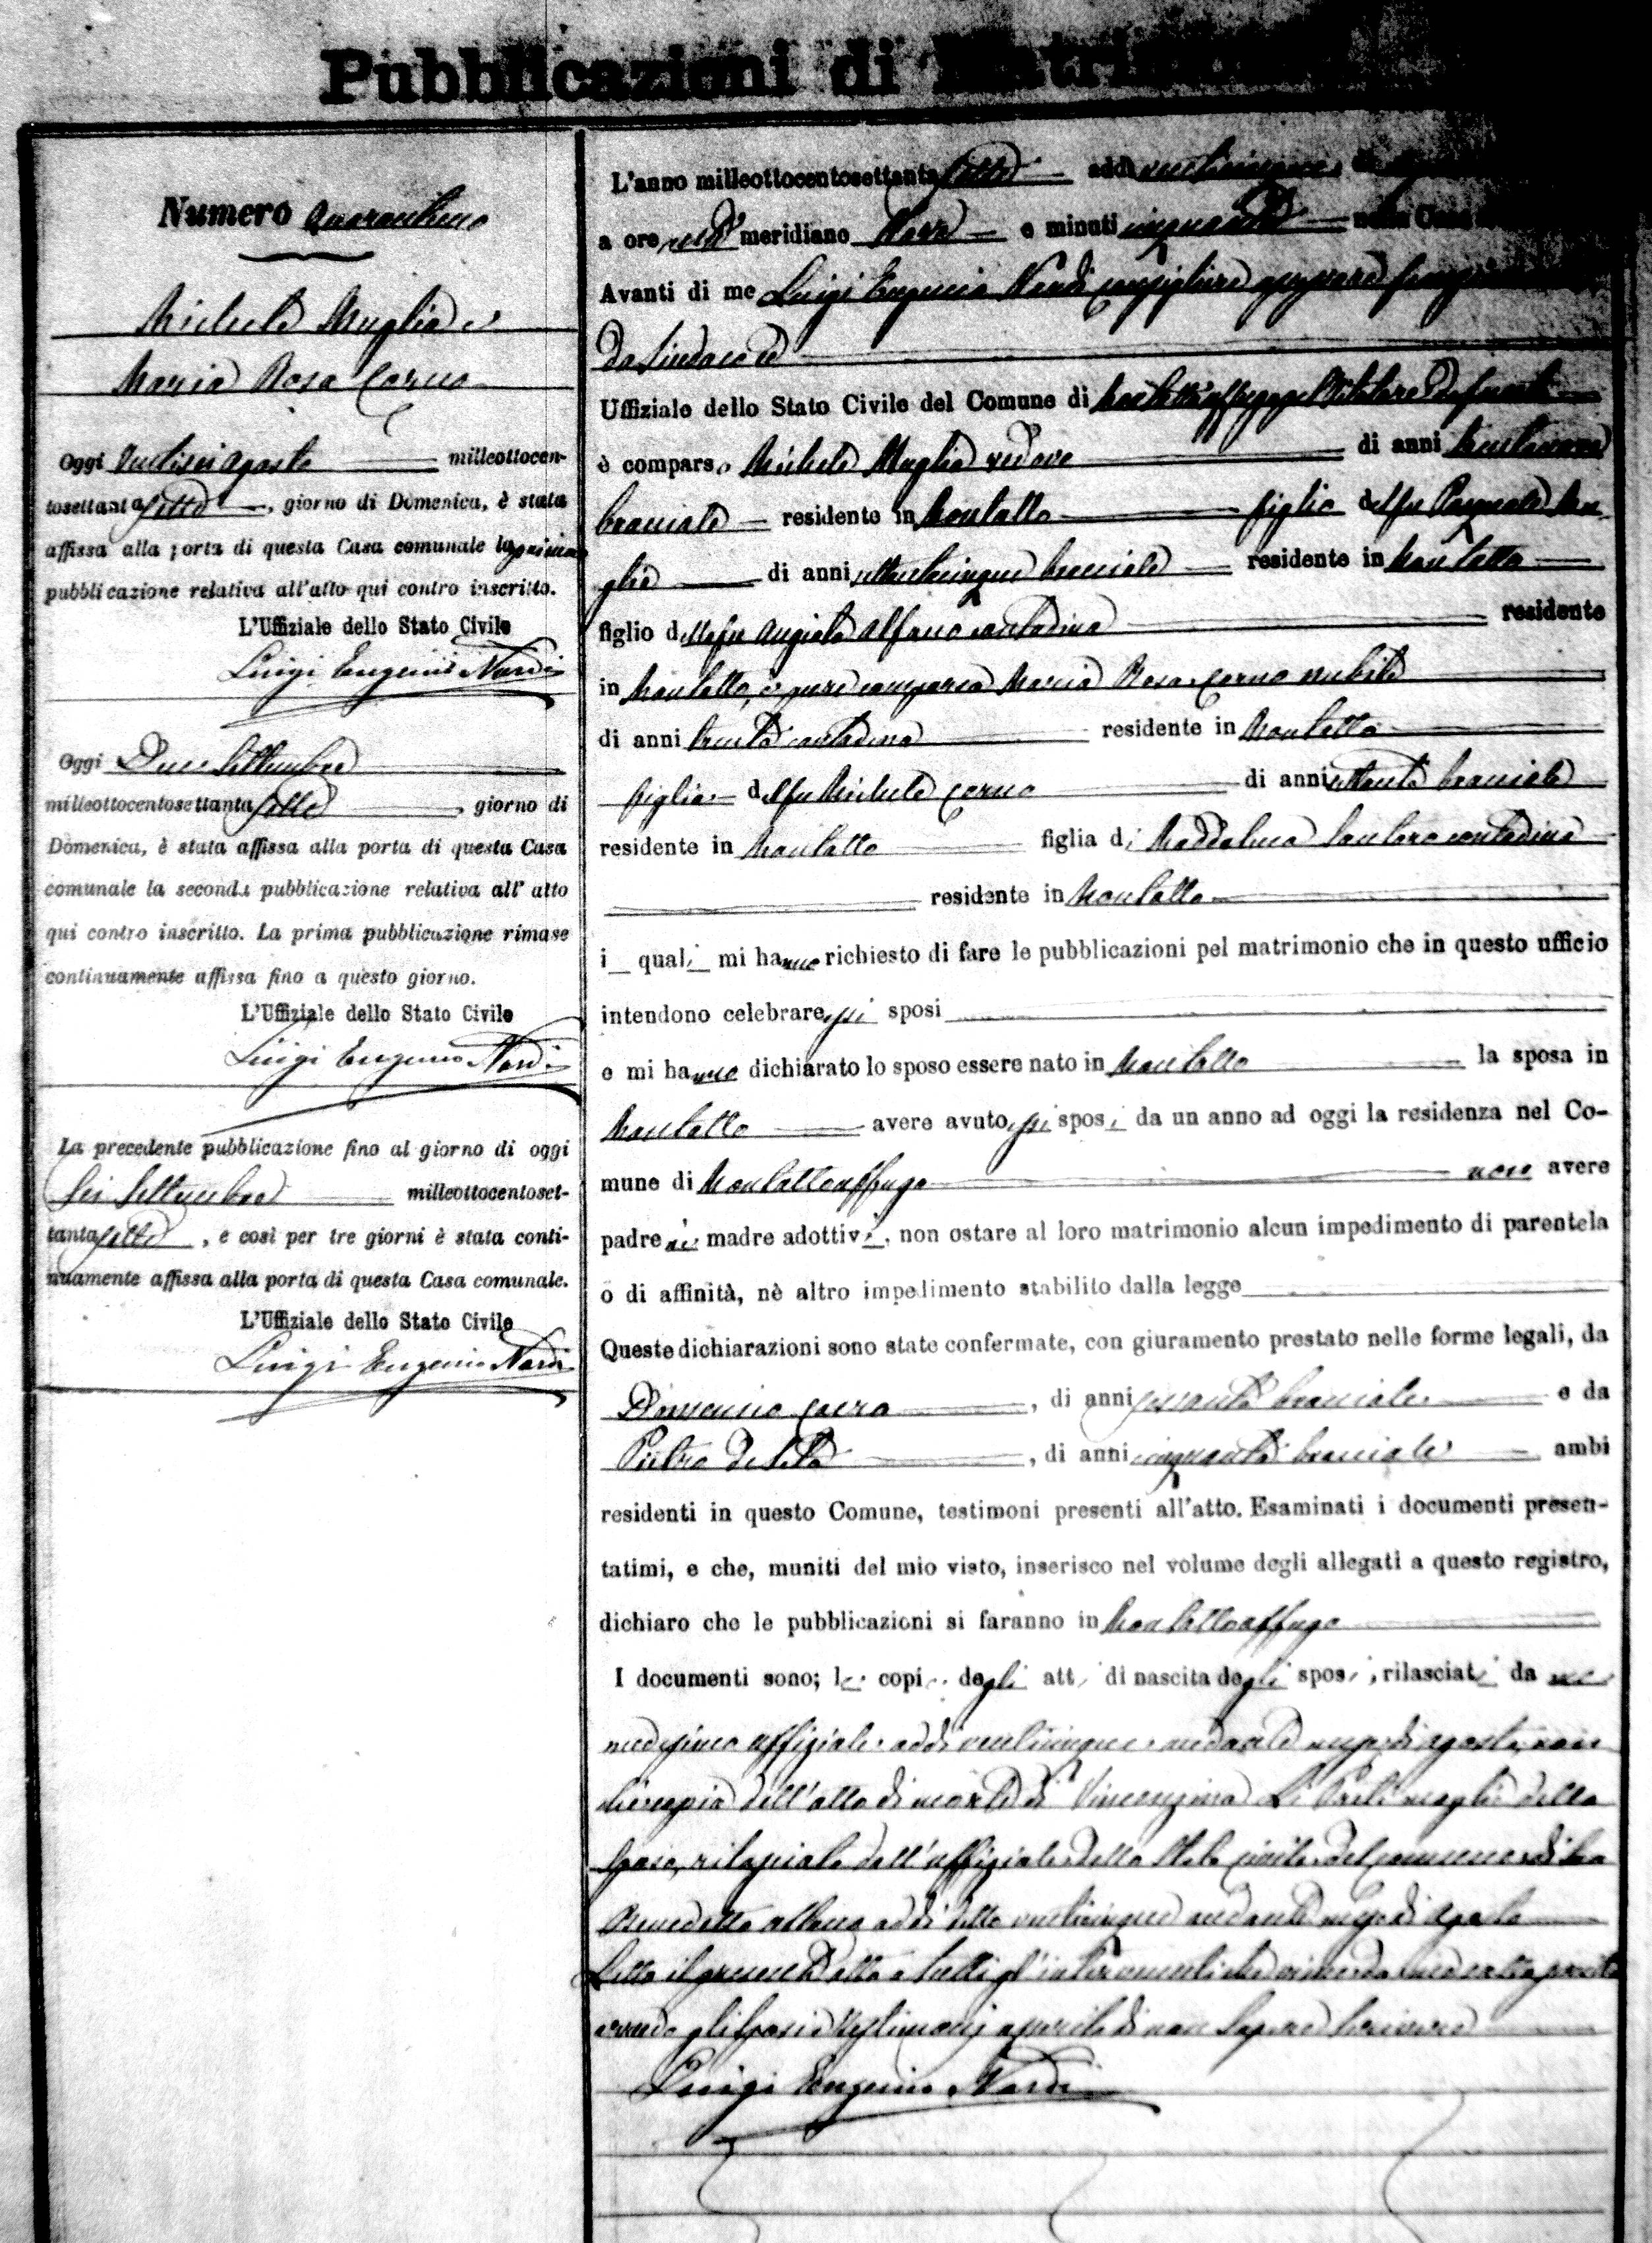 Pubblicazioni di
Numero Quarantuno
Michele Muglia e
Maria Rosa Corno
Oggi Ventisei Agosto milleottocen-
tosettantasette, giorno di Domenica, è stata
affissa alla porta di questa Casa comunale la prima
pubblicazione relativa all'atto qui contro inscritto.
L'Uffiziale dello Stato Civile
Luigi Eugenio Nardi
Oggi Due Settembre
milleottocentosettantasette, giorno di
Domenica, è stata affissa alla porta di questa Casa
comunale la seconda pubblicazione relativa all' atto
qui contro inscritto. La prima pubblicazione rimase
continuamente affissa fino a questo giorno.
L'Uffiziale dello Stato Civile
Luigi Eugenio Nardi
La precedente pubblicazione fino al giorno di oggi
Sei Settembre milleottocentoset-
tantasette, e così per tre giorni è stata conti-
nuamente affissa alla porta di questa Casa comunale.
L'Uffiziale dello Stato Civile
Luigi Eugenio Nardi
L'anno milleottocentosettantasette addì venticinque di
a ore meridiane Nove e minuti cinquanta nella Casa
Avanti di me Luigi Eugenio Nardi consigliere
da Sindaco ed
Uffiziale dello Stato Civile del Comune di Montaltouffugo pel titolare
è comparso Michele Muglia vedovo di anni trentanove
bracciale residente in Montalto figlio del fu Pasquale Mu-
glia di anni settantacinque bracciale residente in Montalto
figlio della fu Angiola Alfano contadina residente
in Montalto, e pure comparsa Maria Rosa Corno nubile
di anni trenta contadina residente in Montalto
figlia del fu Michele Corno di anni settanta bracciale
residente in Montalto figlia di Maddalena Santoro contadina
residente in Montalto
i quali mi hanno richiesto di fare le pubblicazioni pel matrimonio che in questo ufficio
intendono celebrare essi sposi
e mi hanno dichiarato lo sposo essere nato in Montalto la sposa in
Montalto avere avuto essi sposi da un anno ad oggi la residenza nel Co-
mune di Montaltouffugo non avere
padre nè madre adottivi, non ostare al loro matrimonio alcun impedimento di parentela
o di affinità, nè altro impedimento stabilito dalla legge
Queste dichiarazioni sono state confermate, con giuramento prestato nelle forme legali, da
Domenico, di anni sessanta bracciale e da
Pietro De Seta, di anni cinquanta bracciale ambi
residenti in questo Comune, testimoni presenti all'atto. Esaminati i documenti presen-
tatimi, e che, muniti del mio visto, inserisco nel volume degli allegati a questo registro,
dichiaro che le pubblicazioni si faranno in Montaltouffugo
I documenti sono; le copie degli atti di nascita degli sposi, rilasciati da me
medesimo uffiziale addì venticinque andante mese di agosto,
copia dell'atto di morte di Vincenzina Li Preti moglie dello
sposo, rilasciata dall'uffiziale dello Stato civile del comune di San
Benedetto Ullano addì detto venticinque andante mese di Agosto
Letto il presente atto a tutti gl'intervenuti
avendo gli sposi e testimonj asserito di non sapere scrivere
Luigi Eugenio Nardi